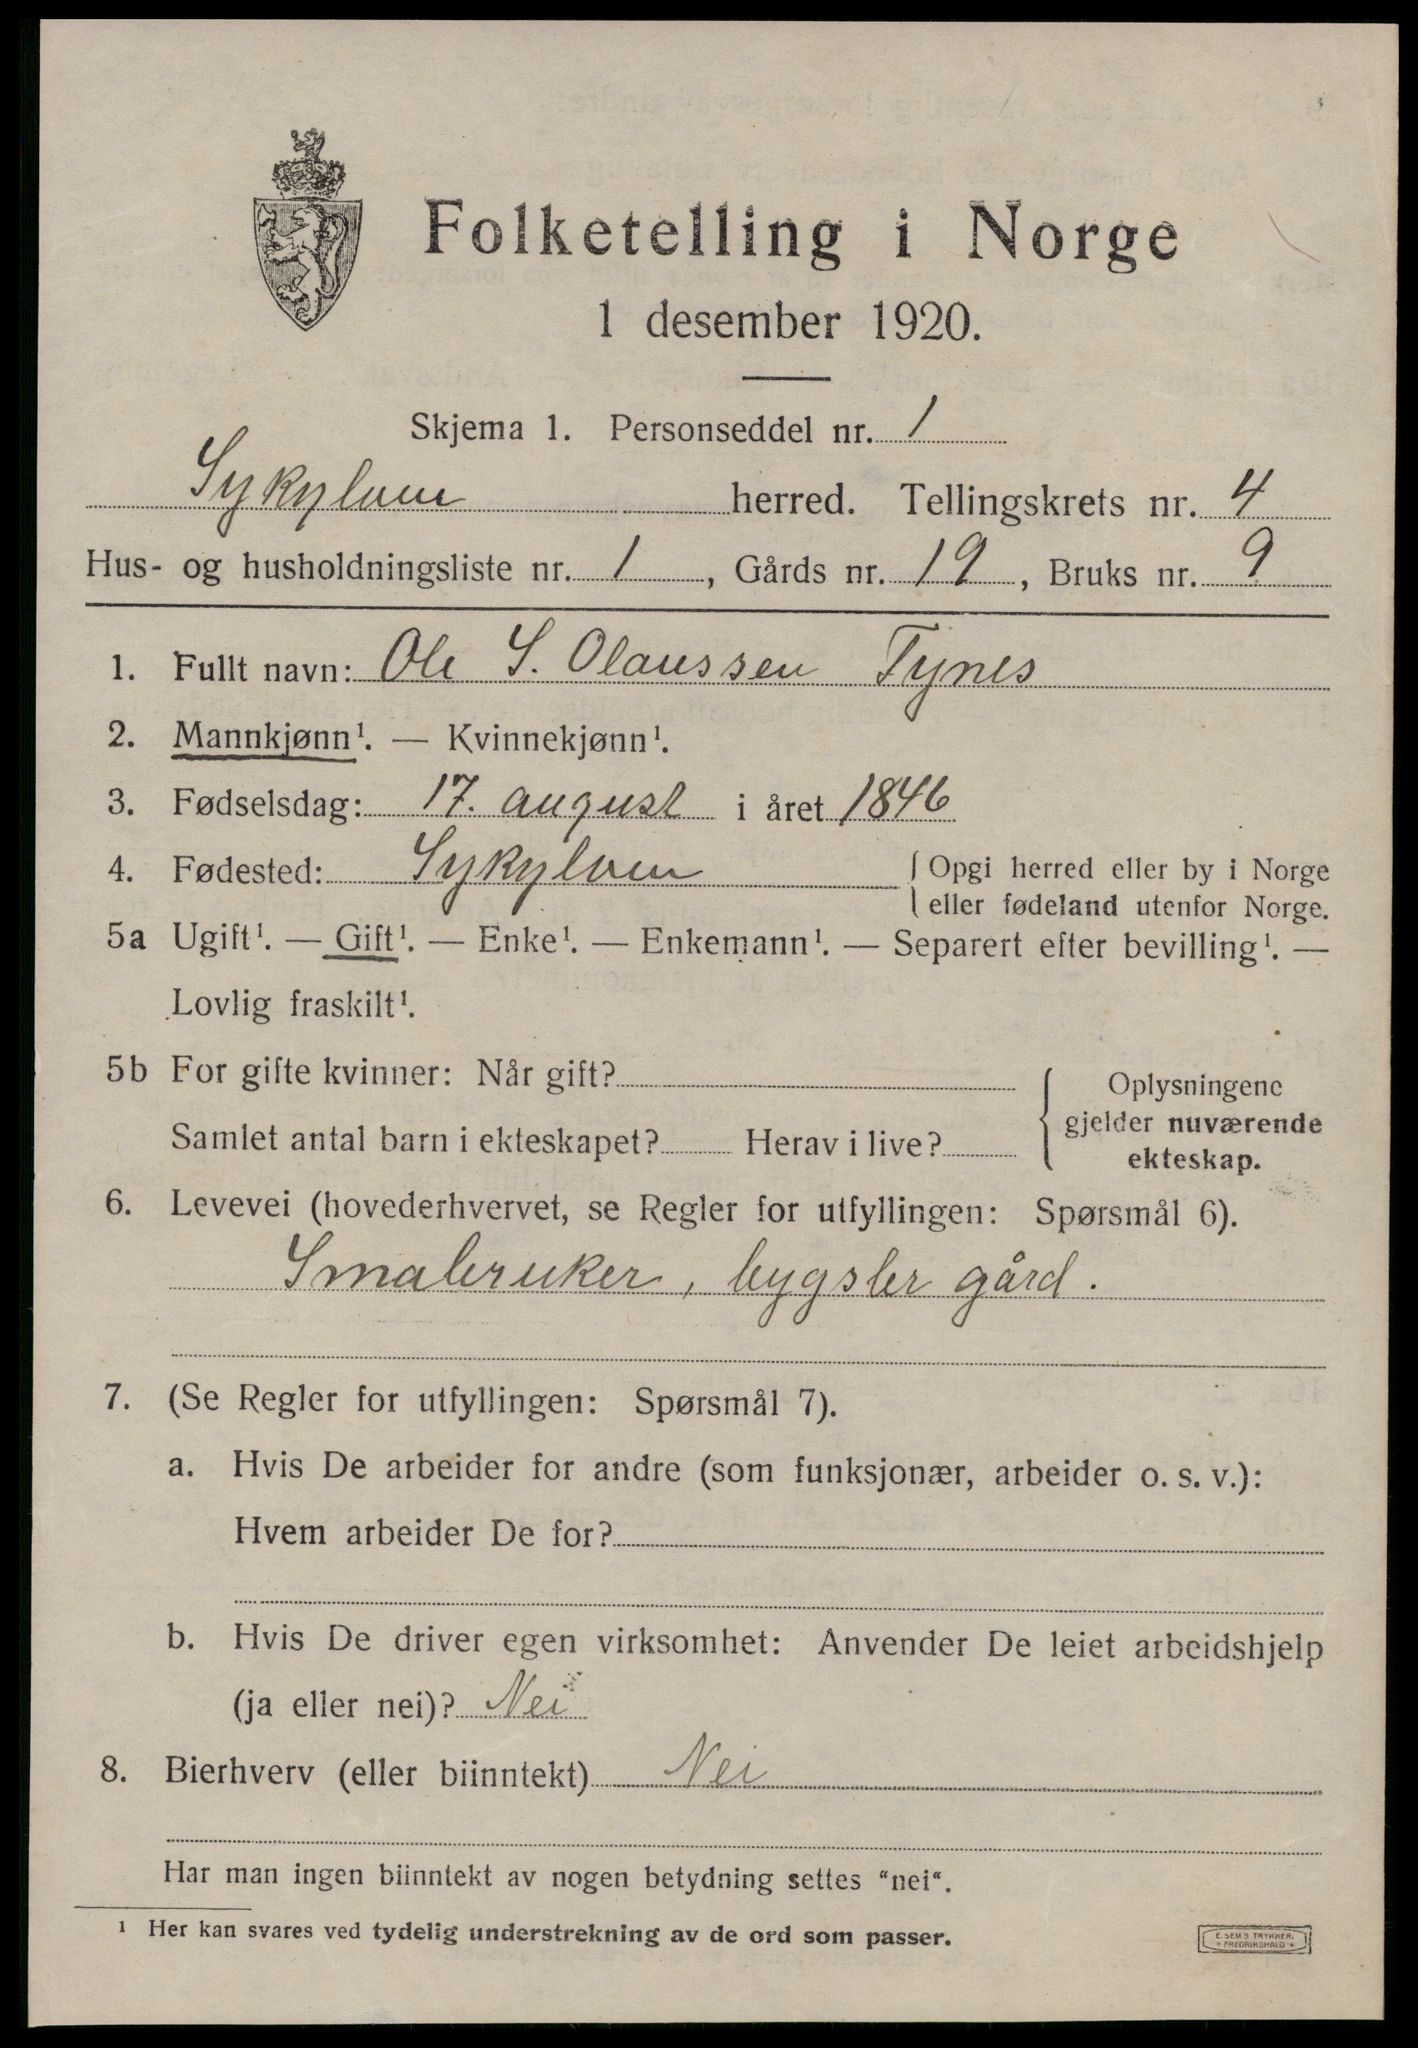 Folketelling i Norge
1 desember 1920.
Skjema 1. Personseddel nr. 1
Sykylven herred. Tellingskrets nr. 4
Hus- og husholdningsliste nr. 1, Gårds nr. 19, Bruks nr. 9
1. Fullt navn: Ole S. Olaussen Tynes
2. Mannkjønn¹. — Kvinnekjønn¹.
3. Fødselsdag: 17. august i året 1846
4. Fødested: Sykylven { Opgi herred eller by i Norge
eller fødeland utenfor Norge.
5a Ugift¹. — Gift¹. — Enke¹. — Enkemann¹. — Separert efter bevilling¹. —
Lovlig fraskilt¹.
5b For gifte kvinner: Når gift?
Samlet antal barn i ekteskapet? Herav i live?
Oplysningene
gjelder nuværende
ekteskap.
6. Levevei (hovederhvervet, se Regler for utfyllingen: Spørsmål 6).
Smabruker, bygsler gård.
7. (Se Regler for utfyllingen: Spørsmål 7).
a. Hvis De arbeider for andre (som funksjonær, arbeider o. s. v.):
Hvem arbeider De for?
b. Hvis De driver egen virksomhet: Anvender De leiet arbeidshjelp
(ja eller nei)? Nei
8. Bierhverv (eller biinntekt) Nei
Har man ingen biinntekt av nogen betydning settes "nei".
¹ Her kan svares ved tydelig understrekning av de ord som passer.
E. SEM'S TRYKKERI.
* FREDRIKSHALD *